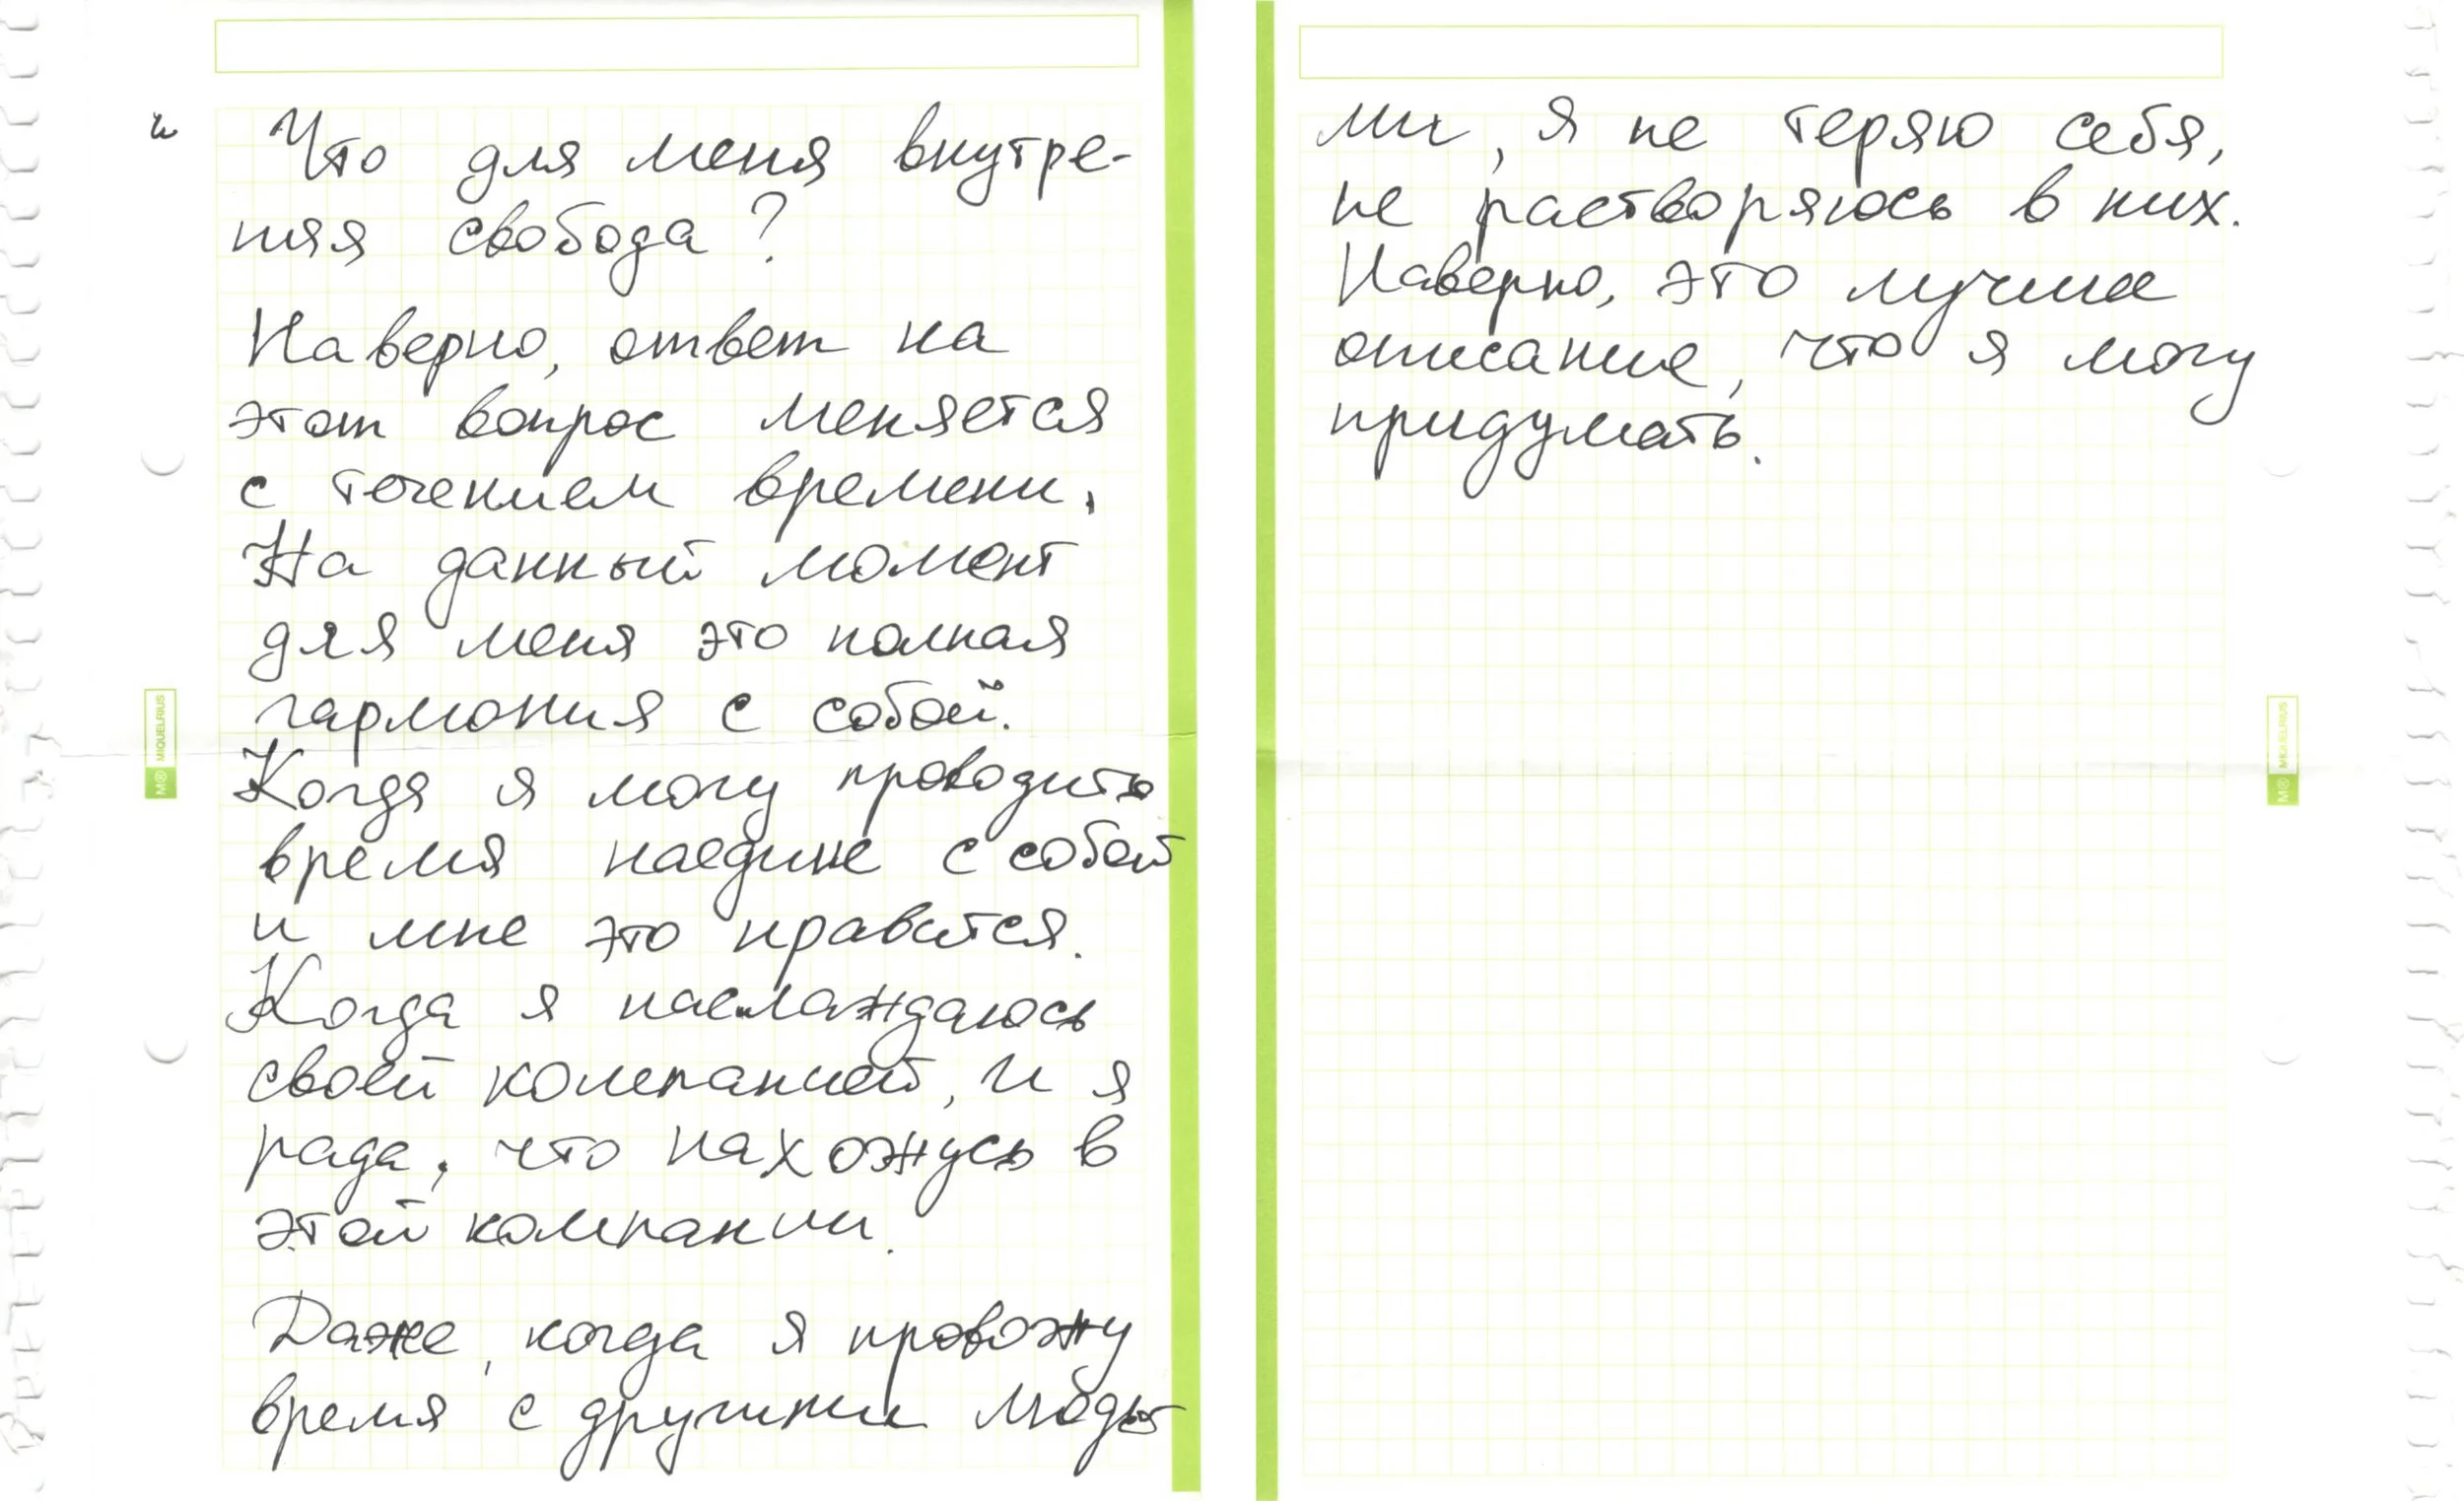 и
Что для меня внутре-
няя свобода?
Наверно, ответ на
этот вопрос меняется
с течением времени.
На данный момент
для меня это полная
гармония с собой.
Когда я могу проводить
время наедине с собой
и мне это нравится.
Когда я наслаждаюсь
своей компанией, и я
рада, что нахожусь в
этой компании.
Даже, когда я провожу
время с другими людь
M® MIQUELRIUS
ми, я не теряю себя,
не растворяюсь в них.
Наверно, это лучшее
описание, что я могу
придумать.
M® MIQUELRIUS